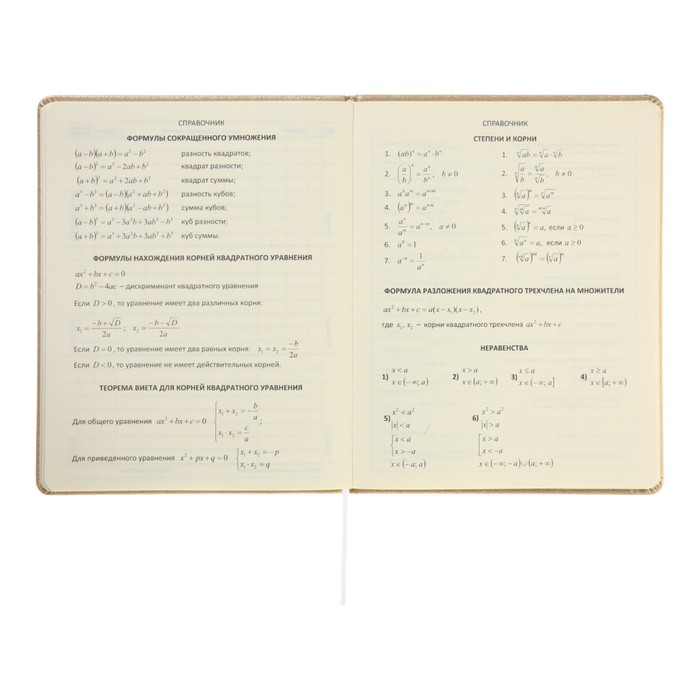 СПРАВОЧНИК
ФОРМУЛЫ СОКРАЩЕННОГО УМНОЖЕНИЯ
(a−b)(a+b)=a²−b² разность квадратов;
(a−b)²=a²−2ab+b² квадрат разности;
(a+b)²=a²+2ab+b² квадрат суммы;
a³−b³=(a−b)(a²+ab+b²) разность кубов;
a³+b³=(a+b)(a²−ab+b²) сумма кубов;
(a−b)³=a³−3a²b+3ab²−b³ куб разности;
(a+b)³=a³+3a²b+3ab²+b³ куб суммы.
ФОРМУЛЫ НАХОЖДЕНИЯ КОРНЕЙ КВАДРАТНОГО УРАВНЕНИЯ
ax²+bx+c=0
D=b²−4ac − дискриминант квадратного уравнения
Если D>0, то уравнение имеет два различных корня:
x₁=(−b+√D)/2a; x₂=(−b−√D)/2a
Если D=0, то уравнение имеет два равных корня: x₁=x₂=−b/2a
Если D<0, то уравнение не имеет действительных корней.
ТЕОРЕМА ВИЕТА ДЛЯ КОРНЕЙ КВАДРАТНОГО УРАВНЕНИЯ
Для общего уравнения ax²+bx+c=0 {x₁+x₂=−b/a
x₁·x₂=c/a;
Для приведенного уравнения x²+px+q=0 {x₁+x₂=−p
x₁·x₂=q
СПРАВОЧНИК
СТЕПЕНИ И КОРНИ
1. (ab)ⁿ=aⁿ·bⁿ
2. (a/b)ⁿ=aⁿ/bⁿ, b≠0
3. aⁿaᵐ=aⁿ⁺ᵐ
4. (aⁿ)ᵐ=aⁿ*ᵐ
5. aⁿ/aᵐ=aⁿ⁻ᵐ, a≠0
6. a⁰=1
7. a⁻ⁿ=1/aⁿ
1. ⁿ√ab=ⁿ√a·ⁿ√b
2. ⁿ√(a/b)=ⁿ√a/ⁿ√b, b≠0
3. (ⁿ√a)ᵐ=ⁿ√aᵐ
4. ᵐ√ⁿ√a=ᵐⁿ√a
5. (ⁿ√a)ⁿ=a, если a≥0
6. ⁿ√aⁿ=a, если a≥0
ФОРМУЛА РАЗЛОЖЕНИЯ КВАДРАТНОГО ТРЕХЧЛЕНА НА МНОЖИТЕЛИ
ax²+bx+c=a(x−x₁)(x−x₂),
где x₁, x₂ − корни квадратного трехчлена ax²+bx+c
НЕРАВЕНСТВА
1) x<a
x∈(−∞;a)
2) x>a
x∈(a;+∞)
3) x≤a
x∈(−∞;a]
4) x≥a
x∈[a;+∞)
5) x²<a²
|x|<a
{x<a
x>−a
x∈(−a;a)
6) x²>a²
|x|>a
[x>a
x<−a
x∈(−∞;−a)∪(a;+∞)